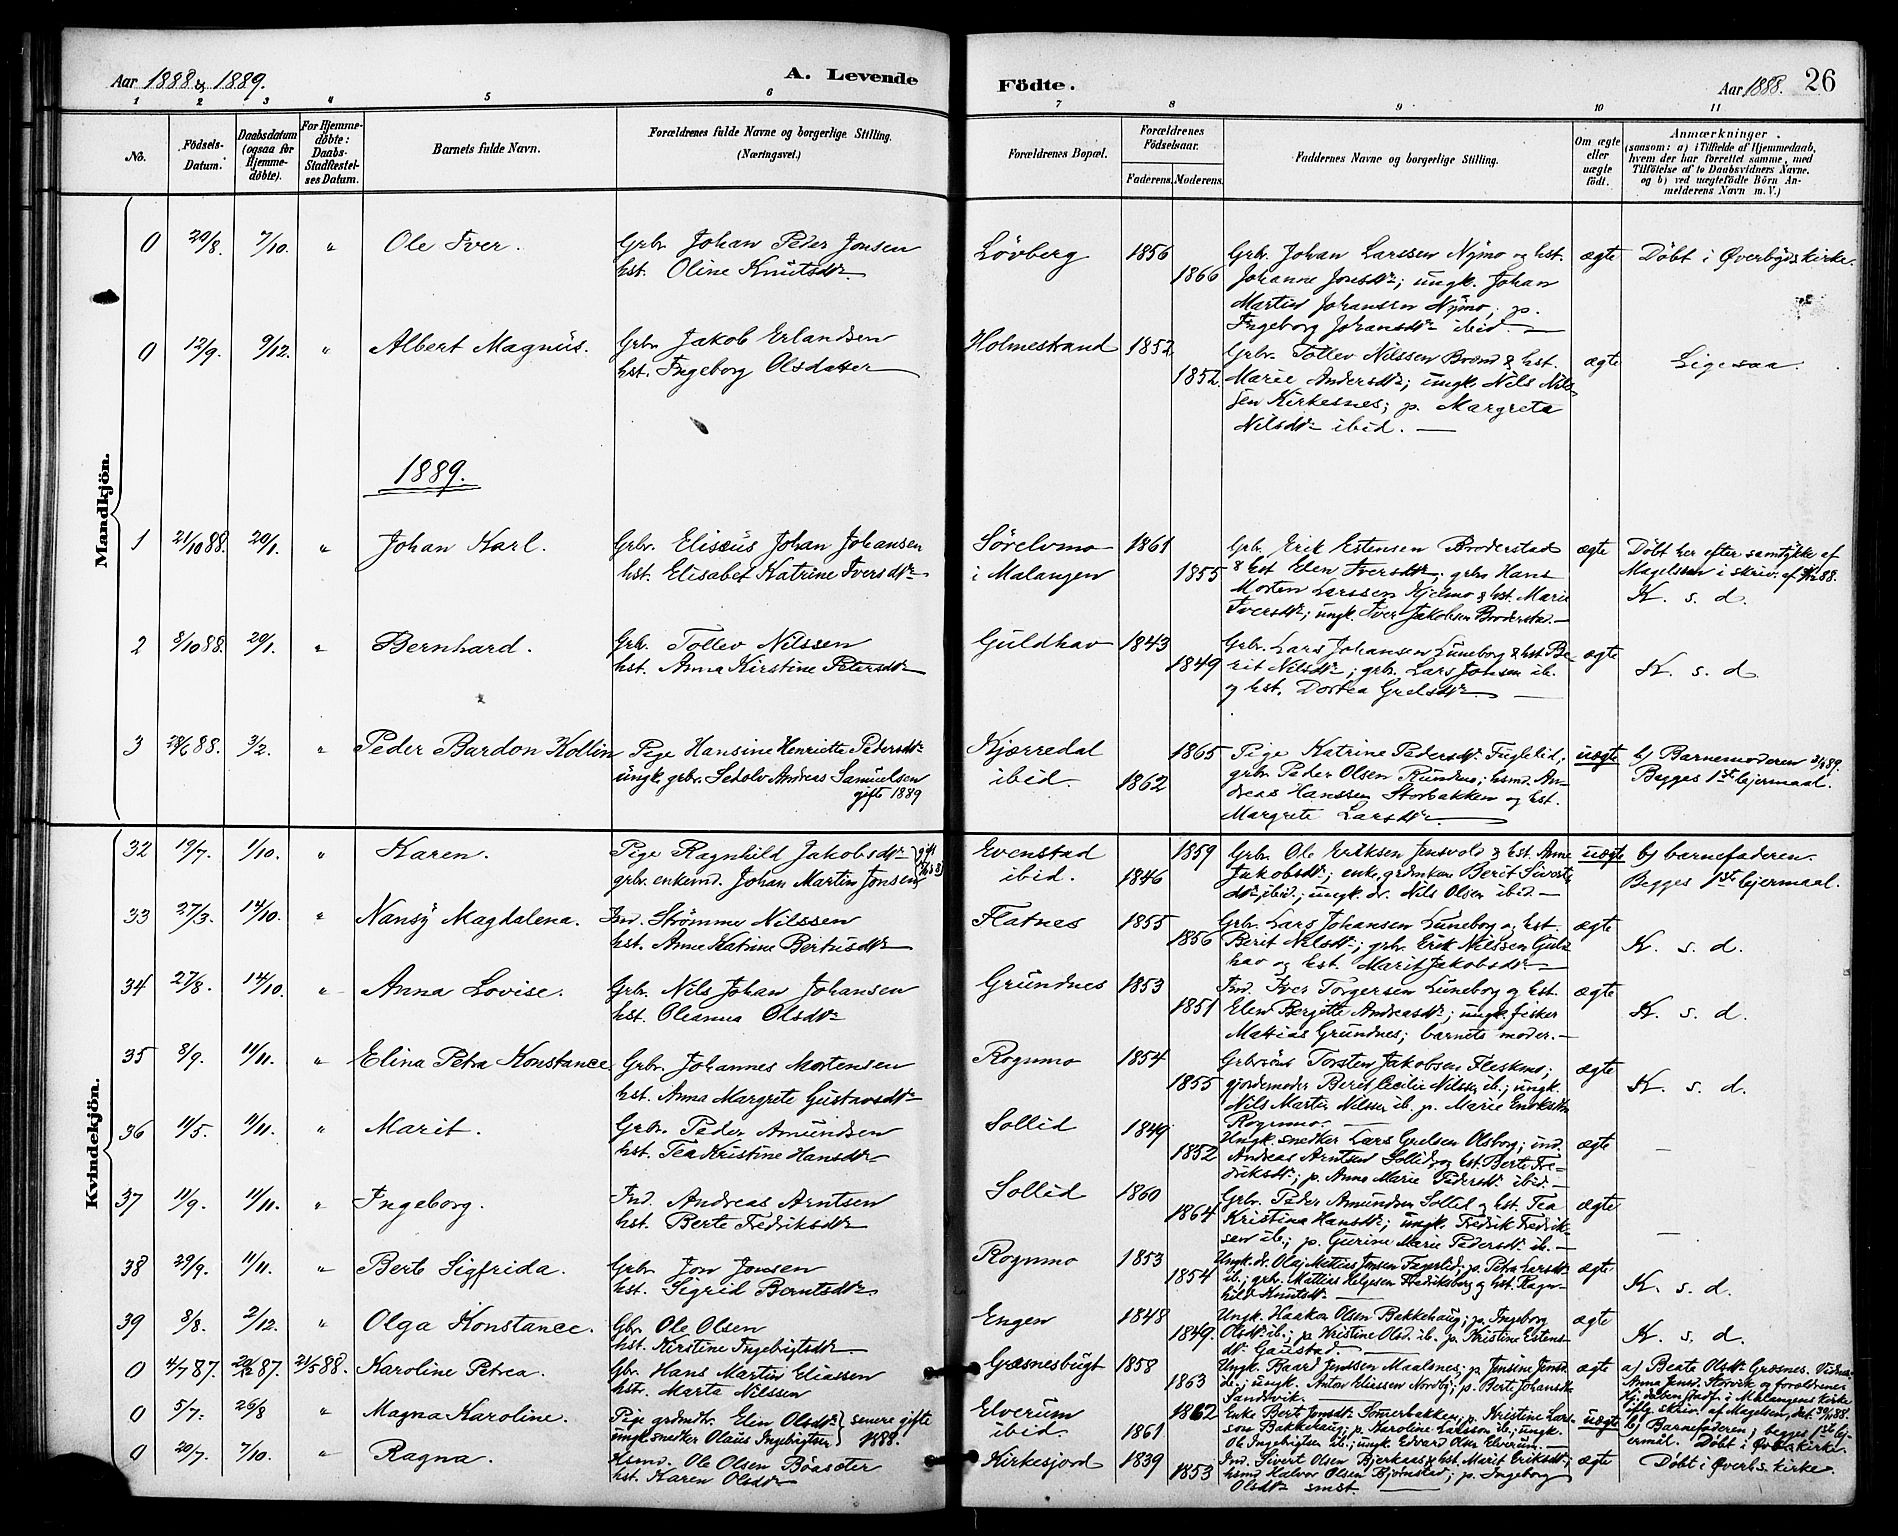 Aar 1888 & 1889.
A. Levende
Födte.
Aar 1888. 26
1 2 3 4 5 6 7 8 9 10 11
No.
Födsels-Datum.
Daabsdatum (ogsaa for Hjemme-döbte).
For Hjemme-döbte: Daabs-Stadfæstel-ses Datum.
Barnets fulde Navn.
Forældrenes fulde Navne og borgerlige Stilling. (Næringsvei.)
Forældrenes Bopæl.
Forældrenes Födselsaar.
Faderens. Moderens.
Faddernes Navne og borgerlige Stilling.
Om ægte eller uægte födt.
Anmærkninger.
(saasom: a) i Tilfælde af Hjemmedaab,
hvem der har forrettet samme, med
Tilföielse af to Daabsvidners Navne,
og b) ved uægtefödte Börn An-
melderens Navn m. V.)
Mandkjön.
0 29/8. 7/10. " Ole Iver. Grbr. Johan Peder Jonsen
hst. Oline Knutsdtr
Løvberg 1856 1866
Grbr. Johan Larssen Nymo og hst.
Johanne Jonsdtr; ungk. Johan
Martin Johansen Nymo, p.
Ingeborg Johansdtr ibid.
ægte Døbt i Øverbyds kirke.
0 12/9. 9/12. " Albert Magnus. Grbr. Jakob Erlandsen
hst. Ingeborg Olsdatter
Holmestrand 1852 1852.
Grbr. Tollev Nilssen Brænd & hst.
Marie Andersdtr; ungk. Nils Nils-
sen Kirkesnes; p. Margreta
Nilsdtr ibid.
ægte Ligesaa.
1889.
1 21/10 88. 20/1. " Johan Karl. Grbr. Elisæus Johan Johansen
hst. Elisabet Katrine Iversdtr
Sørelvmo
i Malangen
1861 1855
Grb. Erik Estensen Broderstad
& hst Elen Iversdtr; grbr Hans
Morten Larssen Kjelmo & hst. Marie
Iversdtr; ungk. Iver Jakobsen Broderstad.
ægte Døbt her efter samtykke af
Magelssen i skriv. af 88.
K. s. d.
2 8/10 88. 20/1. " Bernhard. Grb. Tollev Nilssen
hst. Anna Kirstine Petersdtr
Guldhav 1843 1849
Grbr. Lars Johansen Luneborg & hst. Be-
rit Nilsdtr; grbr. Lars Johsen ib.
og hst. Dortea Grelsdtr.
ægte K. s. d
3 28/6 88. 3/2. " Peder Bardon Kollin Pige Hansine Henriette Pedersdtr
ungk. grbr. Sedolv Andreas Samuelsen
gifte 1889
Kjærredal
ibid.
1865 1862
Pige Katrine Pedersdtr Fuglelid;
grbr. Peder Olsen Rundmo; hsmd. An-
dreas Hanssen Storbakken og hst.
Margrete Larsdtr.
uægte b) Barnemoderen 89.
Begges 1ste lejermaal.
Kvindekjön.
32 19/7. 1/10. " Karen. Pige Ragnhild Jakobsdtr
grbr. enkemd. Johan Martin Jonsen
Evenstad
ibid.
1859 1846
Grb. Ole Eriksen Jensvold & hst. Anne
Jakobsdtr; enke, grdmkone Berit Siverts-
dtr ibid.; ungk. dr. Nils Olsen ibid.
uægte b) barnefaderen.
Begges 1ste lejermaal.
33 27/3. 14/10. " Nansy Magdalena. Ind. Strømme Nilssen
hst. Anne Katrine Bertusdtr
Flatnes 1855 1856
Grb. Lars Johansen Luneborg og hst.
Berit Nilsdtr; grb. Erik Nilssen Guld-
hav og hst. Marit Jakobsdtr
ægte K. s. d.
34 27/8. 14/10. " Anna Lovise. Grbr. Nils Johan Johansen
hst. Oleanna Olsdtr
Grundnes 1853 1851
Ind. Iver Torgersen Luneborg og hst.
Elen Bergitte Andreasdtr; ungk. fisker
Mathias Grundnes; barnets moder.
ægte K. s. d.
35 8/9. 11/11. " Elina Petra Konstance Grbr. Johannes Mortensen
hst. Anna Margrete Gustavsdtr
Rognmo 1854 1855
Torsten Jakobsen Fleskmo;
gjordemoder Berit Cecilie Nilssen ib.; ungk.
Nils Martin Nilssen ib. p. Marie
Rognmo.
ægte K. s. d.
36 11/5. 11/11. " Marit. Grbr. Peder Amundsen
hst. Tea Kristine Hansdtr
Sollid 1849 1852
Ungk. snedker Lars Grelsen Olsborg; ind.
Andreas Arntsen Sollid og hst. Berte Fre-
driksdtr; p. Anne Marie Pedersdtr ibid.
ægte —
37 11/9. 11/11. " Ingeborg. Ind. Andreas Arntsen
hst. Berte Fredriksdtr
Sollid 1860 1864
Grbr. Peder Amundsen Sollid og hst. Tea
Kristina Hansdtr; ungk. Fredrik Fredrik-
sen ib.; p. Gurine Marie Pedersdtr ib.
ægte —
38 29/9. 11/11. " Berte Sigfrida. Grbr. Jon Jonsen
hst. Sigrid Berntsdtr
Rognmo 1853 1854
Ungk. dr. Olaj Matias Jonsen Fagerlid; p. Petra Larsdtr
ib.; grb. Mattias Helgesen Fredriksberg og hst. Ragn-
hild Knutsdtr
ægte K. s. d.
39 8/8. 2/12. " Olga Konstance. Gbr. Ole Olsen
hst. Kirstine Ingebrigtsdtr
Engen 1848 1849.
Ungk. Haakon Olsen Bakkehaug; p. Ingeborg
Olsdtr ib.; p. Kristine Olsd. ib. p. Kristine Estens-
dtr Gaustad.
ægte K. s. d.
0 4/7 87. 87. 21/5 88. Karoline Petrea. Gbr. Hans Martin Eliassen
hst. Marta Nilssen
Græsnesbugt 1858 1863
Ungk. Baard Jenssen Maalsnes; p. Jensine Jens-
dr.; ungk. Anton Eliassen Nordby; p. Berte Johansdtr
Sandsvik.
ægte a) Beate Olsdtr Græsnes. Vidner
Anna Jensd. Storvik og forældrene.
Hj. daaben stadf. i Malangens kirke
iflg. skriv. af Magelssen, dat. 88.
0 5/7. 26/8 " Magna Karoline. Pige grdmdtr. Elen Olsdtr
ungk. snedker Olaus Ingebrigtsen
senere gifte 1888.
Elverum
ibid.
1862 1861
Enke Berte Jonsdtr Sømerbakken, p. Kristine Lars-
son Bakkehaug; p. Karoline Larsson ib.; ungk.
Ole Ingebrigtsen ib.; ungk. Edvard Olsen Elverum.
uægte b) Barnefaderen; begges 1ste lej-
ermål. Døbt i Øverb. kirke.
0 20/7. 7/10. " Ragna. Hsmd. Ole Olsen Bøasæter
hst. Karen Olsdtr
Kirkesjord 1839 1853
Ind. Sivert Olsen Bjerkaas & hst. Marit Eriksdtr;
hsmd Halvor Olsen Bjørnstad; p. Ingeborg
Olsdtr smst.
ægte Døbt i Øverb.s kirke.